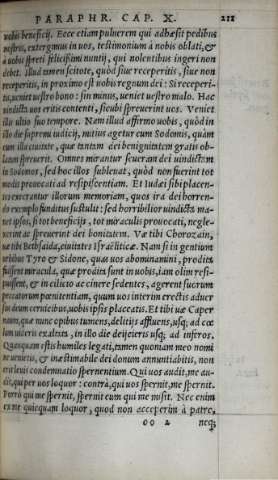 PARAPHR. CAP. X. 212
uobis beneficij. Ecce etiam puluerem qui adhæsit pedibus
nostris, extergimus in uos, testimonium à nobis oblati, &
à uobis spreti felicissimi nuntij, qui nolentibus ingeri non
debet. Illud tamen scitote, quòd siue receperitis, siue non
receperitis, in proximo est uobis regnum dei: Si receperi-
tis, ueniet uestro bono: sin minus, ueniet uestro malo. Hac
uindicta uos eritis contenti, sicubi spreuerint uos. Veniet
illis ultio suo tempore. Nam illud affirmo uobis, quòd in
illo die supremi iudicij, mitius agetur cum Sodomis, quàm
cum illa ciuitate, quæ tantam dei benignitatem gratis ob-
latam spreuerit. Omnes mirantur seueram dei uindictam
in Sodomos, sed hoc illos subleuat, quòd non fuerint tot
modis prouocati ad resipiscentiam. Et Iudæi sibi placen-
tes execrantur illorum memoriam, quos ira dei horren-
do exemplo funditus sustulit: sed horribilior uindicta ma-
net ipsos, si tot beneficijs, tot miraculis prouocati, negle-
xerint ac spreuerint dei bonitatem. Væ tibi Chorozain,
uæ tibi Bethsaida, ciuitates Israëliticæ. Nam si in gentium
urbibus Tyro & Sidone, quas uos abominamini, prodita
fuissent miracula, quæ prodita sunt in uobis, iam olim resi-
puissent, & in cilicio ac cinere sedentes, agerent suorum
peccatorum pœnitentiam, quum uos interim erectis aduer
sus deum ceruicibus, uobis ipsis placeatis. Et tibi uæ Caper
naum, quæ nunc opibus tumens, delitijs affluens, usq; ad cœ
lum uideris exaltata, in illo die deijcieris usq; ad inferos.
Quanquam estis humiles legati, tamen quoniam meo nomi
ne uenietis, & inæstimabile dei donum annuntiabitis, non
erit leuis condemnatio spernentium. Qui uos audit, me au-
dit, qui per uos loquor: contrà, qui uos spernit, me spernit.
Porrò qui me spernit, spernit eum qui me misit. Nec enim
ex me quicquam loquor, quod non acceperim à patre,
oo 2 neq;